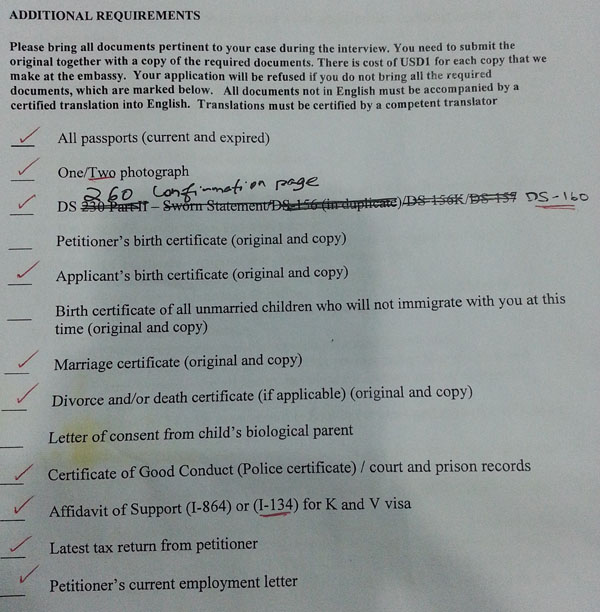 ADDITIONAL REQUIREMENTS
Please bring all documents pertinent to your case during the interview. You need to submit the
original together with a copy of the required documents. There is cost of USD1 for each copy that we
make at the embassy. Your application will be refused if you do not bring all the required
documents, which are marked below. All documents not in English must be accompanied by a
certified translation into English. Translations must be certified by a competent translator
All passports (current and expired)
One/Two photograph
260 Confirmation page
DS 230 Part II – Sworn Statement/DS-156 (in duplicate)/DS-156K/DS-157 DS-160
Petitioner's birth certificate (original and copy)
Applicant's birth certificate (original and copy)
Birth certificate of all unmarried children who will not immigrate with you at this
time (original and copy)
Marriage certificate (original and copy)
Divorce and/or death certificate (if applicable) (original and copy)
Letter of consent from child's biological parent
Certificate of Good Conduct (Police certificate) / court and prison records
Affidavit of Support (I-864) or (I-134) for K and V visa
Latest tax return from petitioner
Petitioner's current employment letter